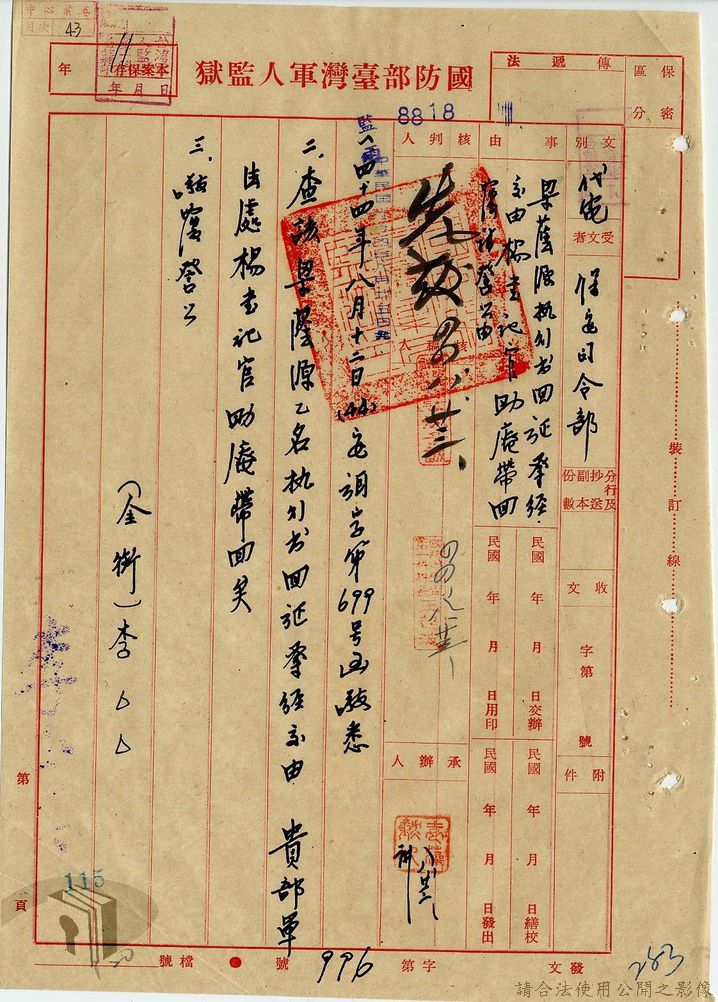 中心案卷
目次 43
本案保存
年 月 日
年
國防部臺灣軍人監獄
傳遞法
保密
區分
文別
代電
受文者
保安司令部
分行及
抄送
副本
份數
事由
梁蔭源執行書回証奉經
交由楊書記官助庵帶回
復請登公由
核判人
先發
四四、八、廿三、
8818
收文
字第
號
附件
民國 年 月 日交辦
民國 年 月 日繕校
民國 年 月 日用印
民國 年 月 日發出
承辦人
八廿三
一、四十四年八月十二日(44)安訓字第699号函敬悉
二、查該梁蔭源乙名執行書回証奉經交由 貴部軍
法處楊書記官助庵帶回矣
三、敬復登公
(全銜)李
第
115
頁
裝訂線
發文
字第
996
號
檔號
283
請合法使用公開之影像